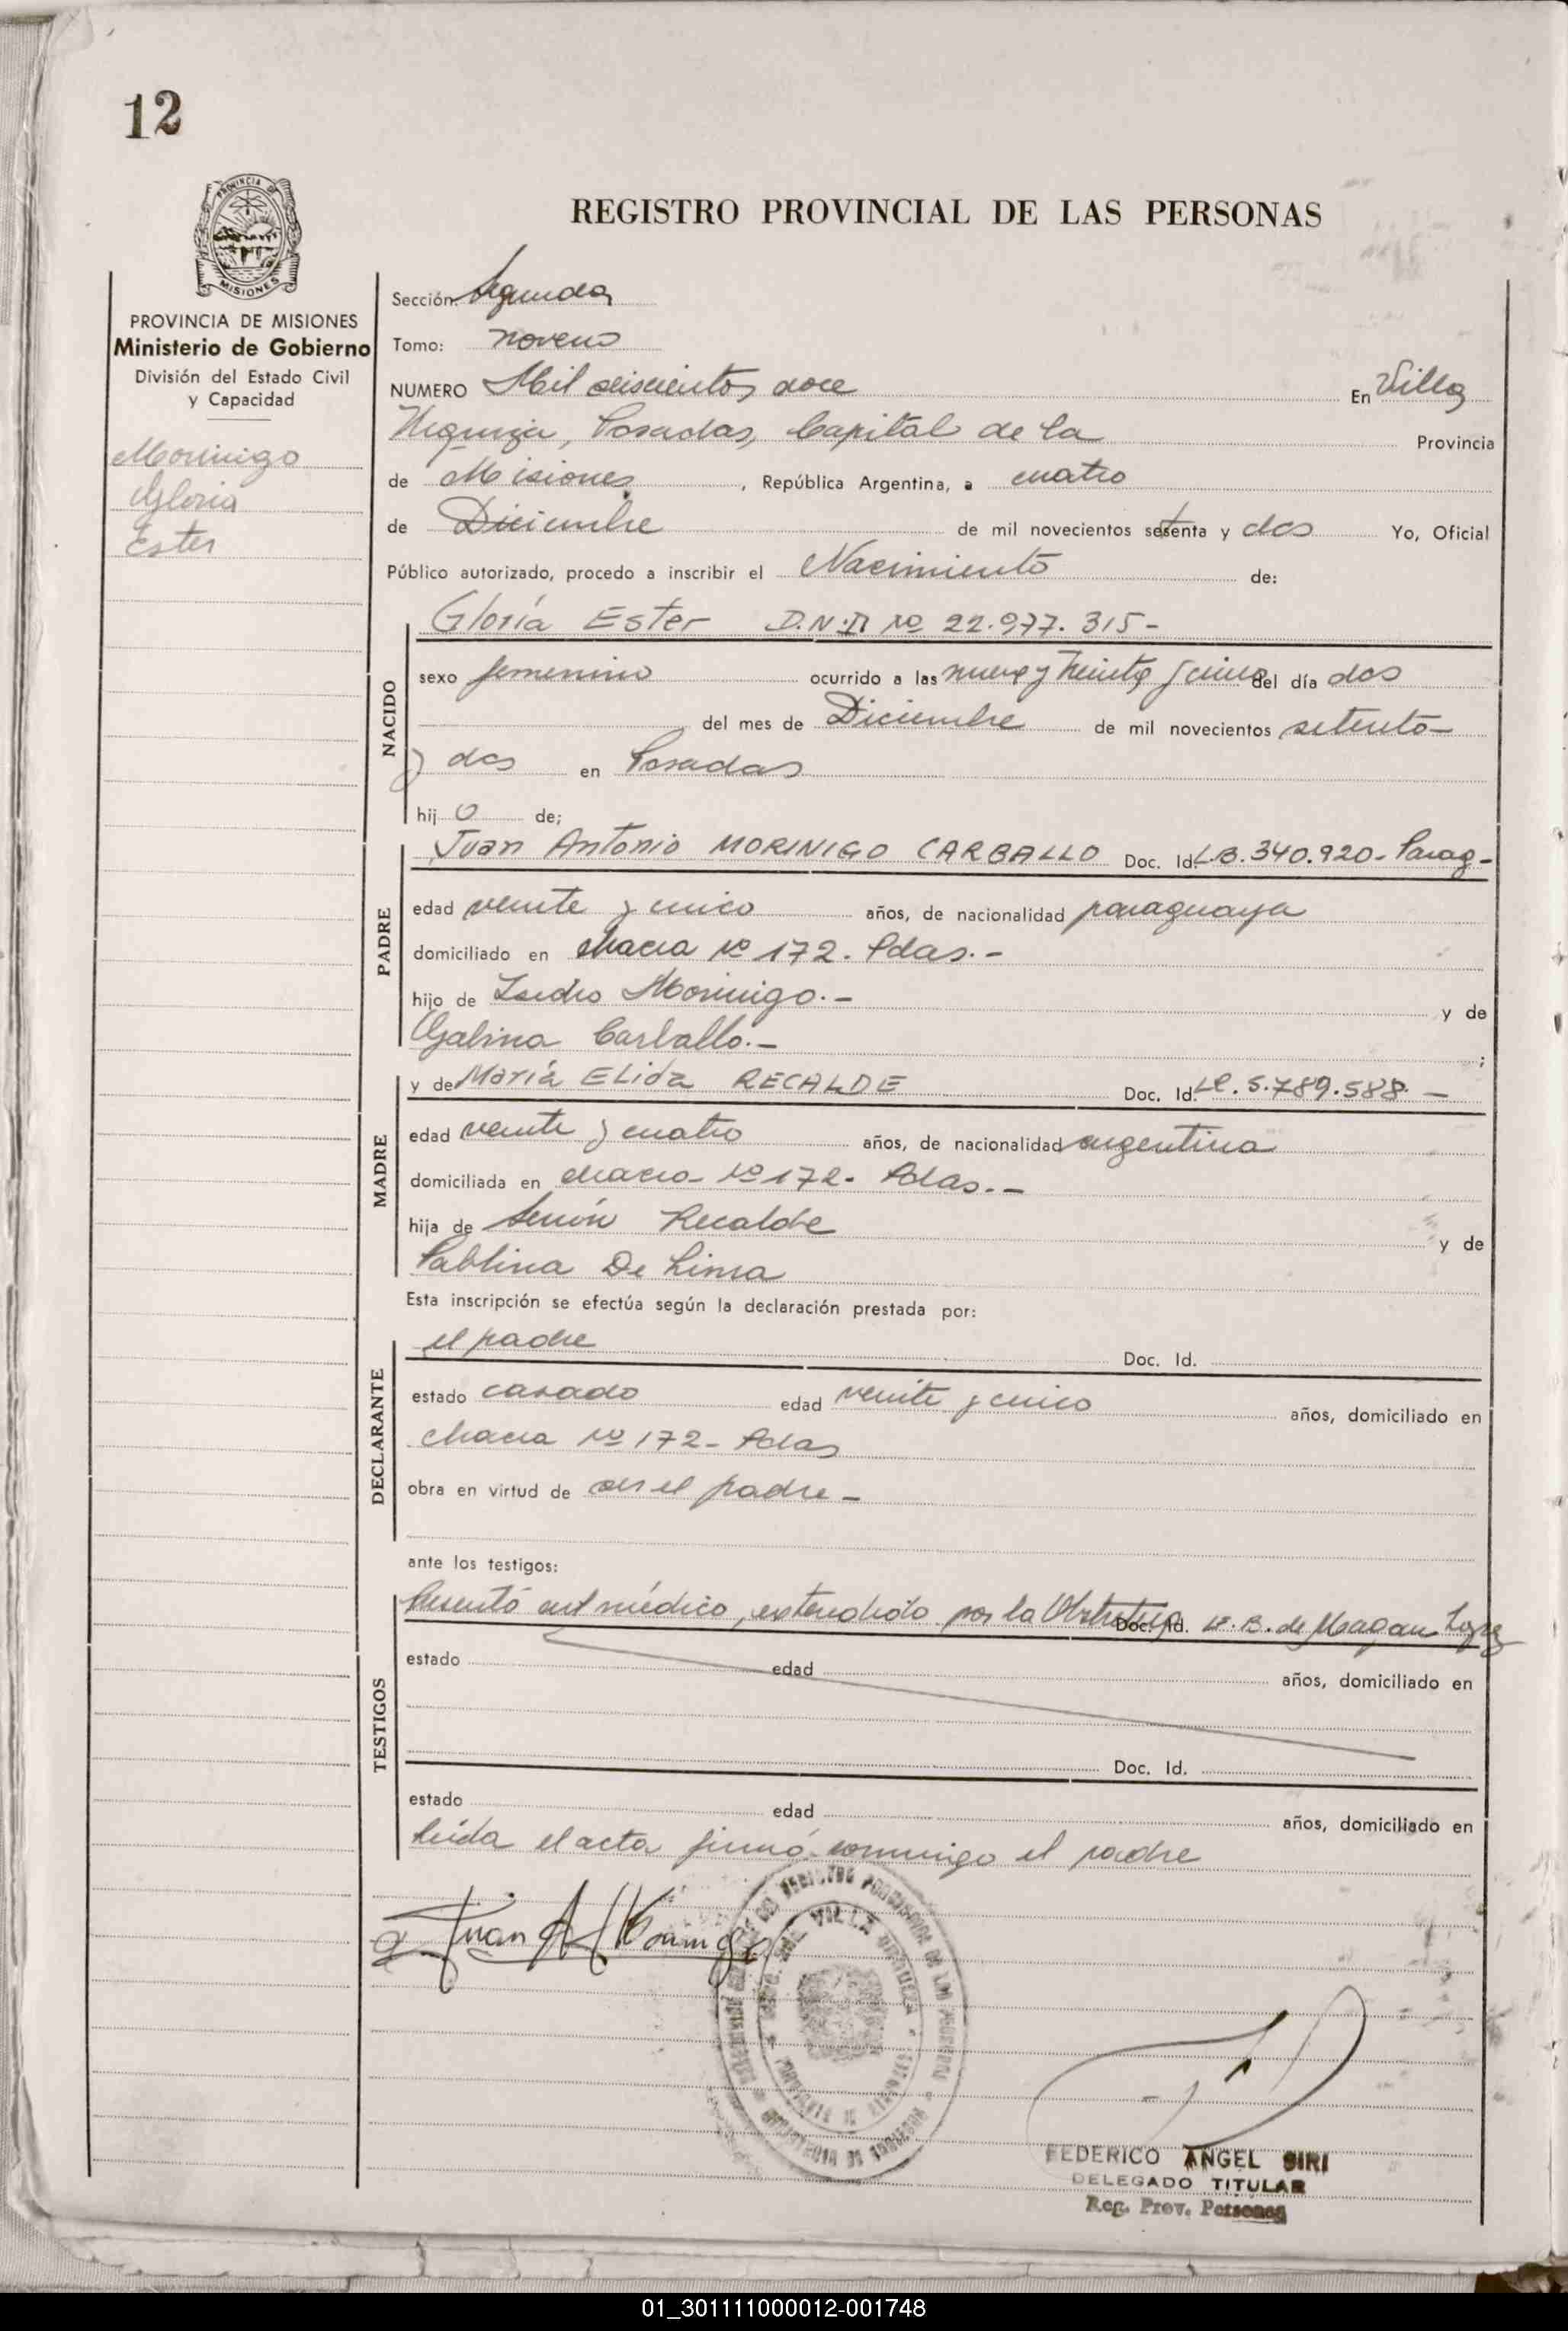 12
PROVINCIA DE
MISIONES
REGISTRO PROVINCIAL DE LAS PERSONAS
PROVINCIA DE MISIONES
Ministerio de Gobierno
División del Estado Civil
y Capacidad
Morinigo
Gloria
Ester
Sección: Segunda
Tomo: noveno
NUMERO Mil seiscientos doce En Villa
Urquiza, Posadas, Capital de la Provincia
de Misiones, República Argentina, a cuatro
de Diciembre de mil novecientos setenta y dos Yo, Oficial
Público autorizado, procedo a inscribir el Nacimiento de:
NACIDO
Gloria Ester D.N.I. Nº 22.977.315-
sexo femenino ocurrido a las nueve y treinta y cinco del día dos
del mes de Diciembre de mil novecientos setenta-
y dos en Posadas
hij o de;
PADRE
Juan Antonio MORINIGO CARBALLO Doc. Id. LB.340.920- Parag-
edad veinte y cinco años, de nacionalidad paraguaya
domiciliado en chacra Nº 172. Pdas.-
hijo de Isidro Morinigo.- y de
Galina Carballo.- ;
MADRE
y de María ELida RECALDE Doc. Id. LC. 5.789.588.-
edad veinte y cuatro años, de nacionalidad argentina
domiciliada en chacra Nº 172. Pdas.-
hija de Recalde y de
Pablina De Lima
Esta inscripción se efectúa según la declaración prestada por:
DECLARANTE
el padre Doc. Id.
estado casado edad veinte y cinco años, domiciliado en
chacra Nº 172- Pdas
obra en virtud de ser el padre-
ante los testigos:
TESTIGOS
Presentó cert médico, extendido por la Obstetra Doc. Id. B. de Magan
estado edad años, domiciliado en
Doc. Id.
estado edad años, domiciliado en
Leída el acta firmó conmigo el padre
Juan A Morinigo
VILLA URQUIZA
FEDERICO ANGEL SIRI
DELEGADO TITULAR
Reg. Prov. Personas
01_301111000012-001748